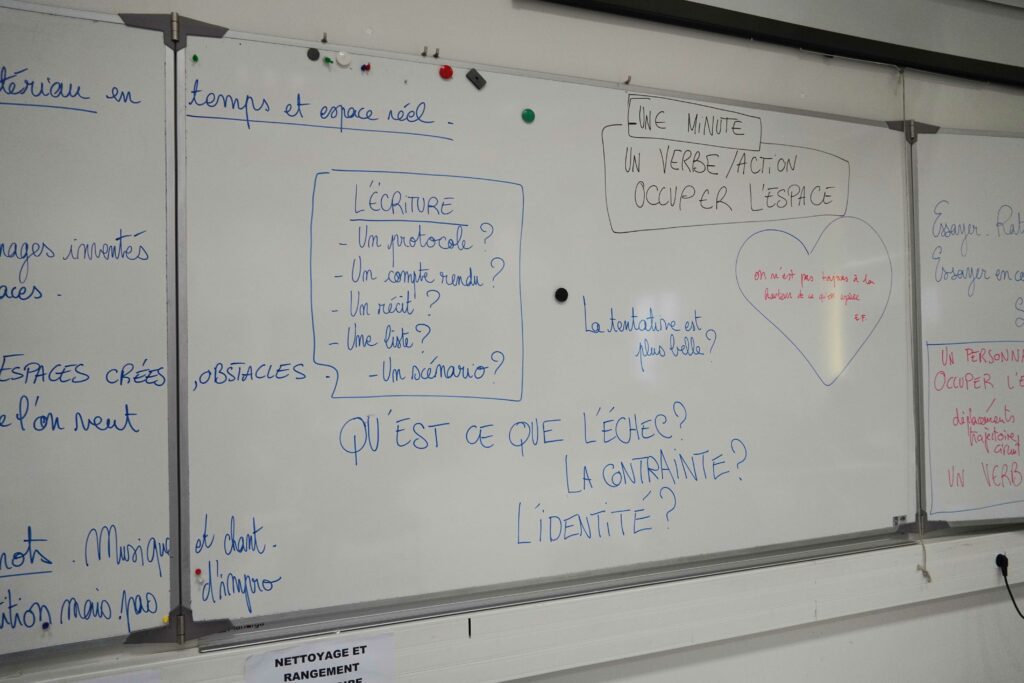 tériau en temps et espace réel -
nages inventés
aces.
ESPACES CRÉES , OBSTACLES.
e l'on veut
mots. Musique et chant.
ition mais pas d'impro
L'ÉCRITURE
- Un protocole ?
- Un compte rendu ?
- Un récit ?
- Une liste ?
- Un scénario ?
- UNE MINUTE
UN VERBE / ACTION
OCCUPER L'ESPACE
on n'est pas toujours à la
hauteur de ce qu'on espère
E.F.
La tentative est
plus belle ?
QU'EST CE QUE L'ÉCHEC ?
LA CONTRAINTE ?
L'IDENTITÉ ?
Essayer. Rat
Essayer en co
S
UN PERSONNA
OCCUPER L'E
déplacements
trajectoire
circuit
UN VERB
NETTOYAGE ET
RANGEMENT